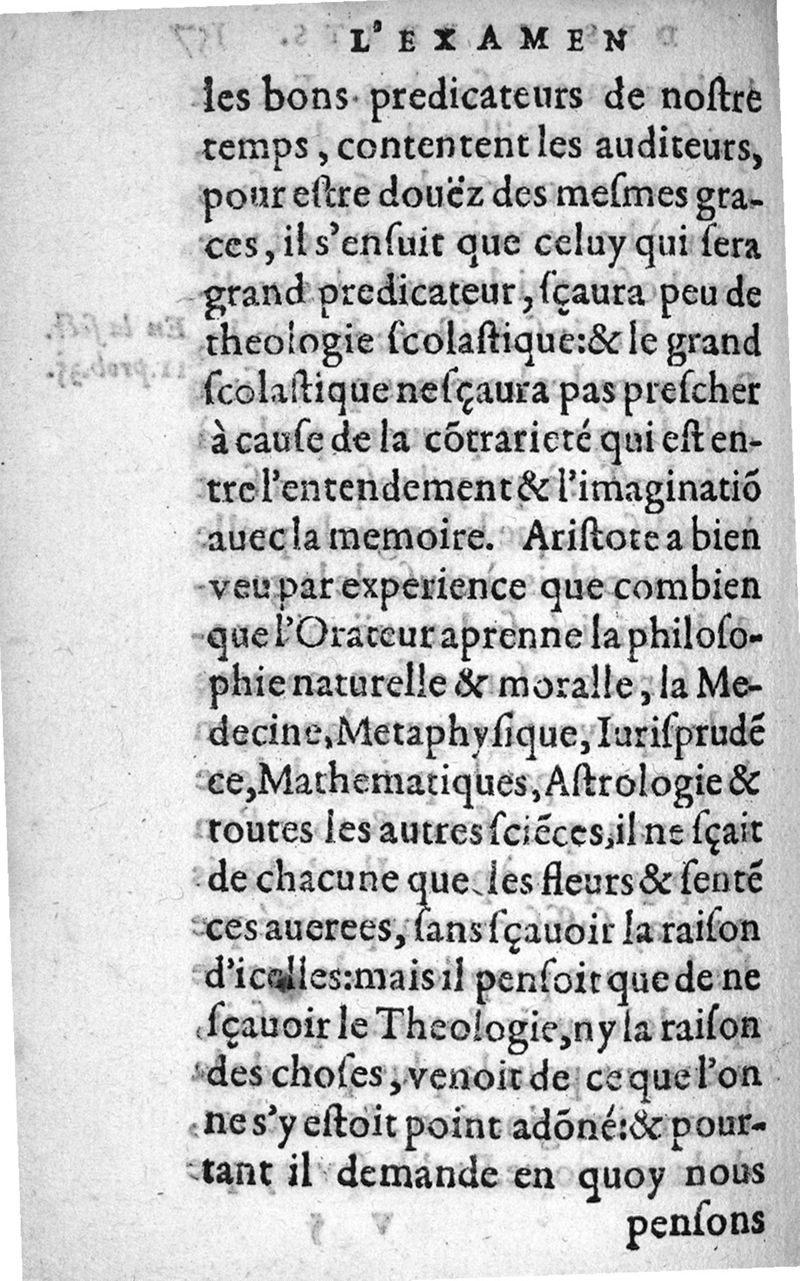 L'EXAMEN
les bons predicateurs de noſtre
temps, contentent les auditeurs,
pour eſtre douëz des meſmes gra-
ces, il s'enſuit que celuy qui ſera
grand predicateur, ſçaura peu de
theologie ſcolaſtique:& le grand
ſcolaſtique ne ſçaura pas preſcher
à cauſe de la cõtrarieté qui eſt en-
tre l'entendement & l'imaginatiõ
auec la memoire. Ariſtote a bien
veu par experience que combien
que l'Orateur aprenne la philoſo-
phie naturelle & moralle, la Me-
decine, Metaphyſique, Iuriſprudẽ
ce, Mathematiques, Aſtrologie &
toutes les autres ſciẽces, il ne ſçait
de chacune que les fleurs & ſentẽ
ces auerees, ſans ſçauoir la raiſon
d'icelles: mais il penſoit que de ne
ſçauoir le Theologie, ny la raiſon
des choſes, venoit de ce que l'on
ne s'y eſtoit point adõné:& pour-
tant il demande en quoy nous
penſons